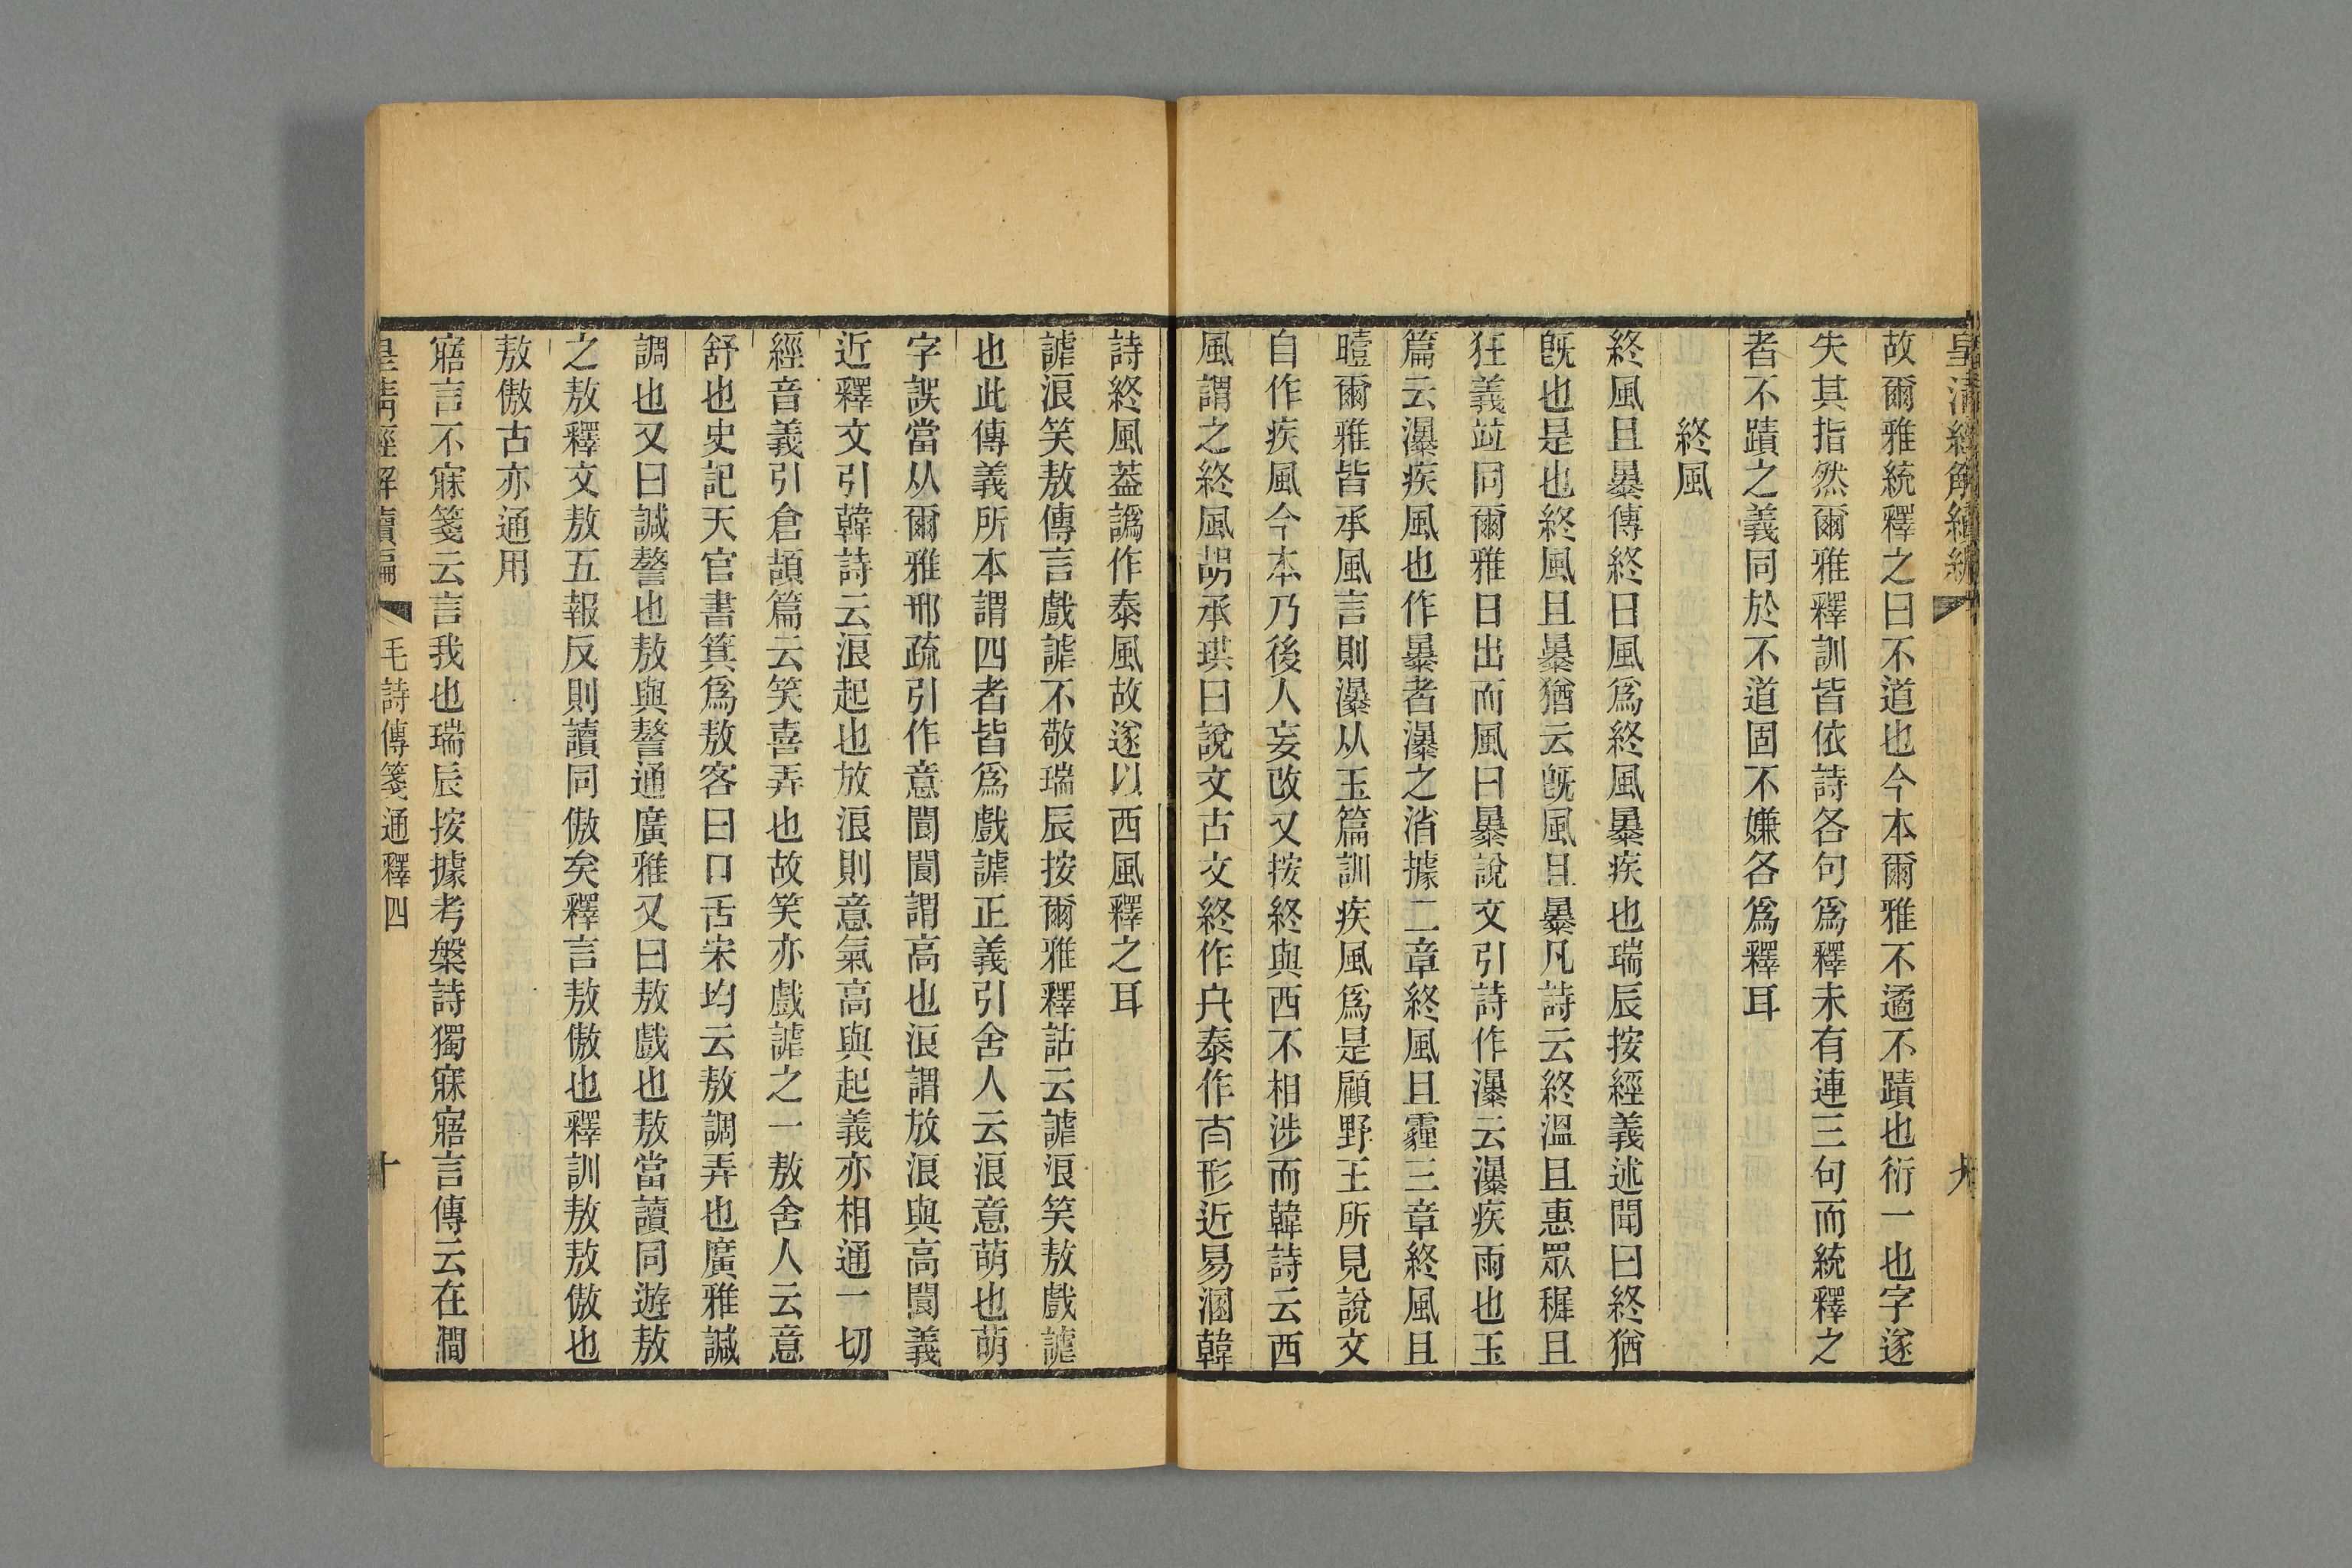 皇清經解續編
故爾雅統釋之曰不道也今本爾雅不遹不蹟也衍一也字遂
失其指然爾雅釋訓皆依詩各句爲釋未有連三句而統釋之
者不蹟之義同於不道固不嫌各爲釋耳
終風
終風且暴傳終日風爲終風暴疾也瑞辰按經義述聞曰終猶
旣也是也終風且暴猶云旣風且暴凡詩云終溫且惠眾穉且
狂義竝同爾雅日出而風曰暴說文引詩作瀑云瀑疾雨也玉
篇云瀑疾風也作暴者瀑之消據二章終風且霾三章終風且
曀爾雅皆承風言則瀑从玉篇訓疾風爲是顧野王所見說文
自作疾風今本乃後人妄改又按終與西不相涉而韓詩云西
風謂之終風胡承珙曰說文古文終作𠔾泰作𡗞形近易溷韓
詩終風葢譌作泰風故遂以西風釋之耳
謔浪笑敖傳言戲謔不敬瑞辰按爾雅釋詁云謔浪笑敖戲謔
也此傳義所本謂四者皆爲戲謔正義引舍人云浪意萌也萌
字誤當从爾雅邢疏引作意閬閬謂高也浪謂放浪與高閬義
近釋文引韓詩云浪起也放浪則意氣高與起義亦相通一切
經音義引倉頡篇云笑喜弄也故笑亦戲謔之一敖舍人云意
舒也史記天官書箕爲敖客曰口舌宋均云敖調弄也廣雅諴
調也又曰諴謷也敖與謷通廣雅又曰敖戲也敖當讀同遊敖
之敖釋文敖五報反則讀同傲矣釋言敖傲也釋訓敖敖傲也
敖傲古亦通用
寤言不寐箋云言我也瑞辰按據考槃詩獨寐寤言傳云在澗
皇淸經解續編 毛詩傳箋通釋四 十